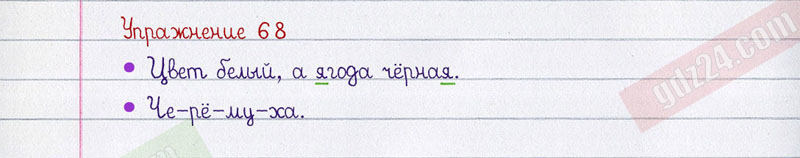 Упражнение 68
• Цвет белый, а ягода чёрная.
• Че-рё-му-ха.
gdz24.com